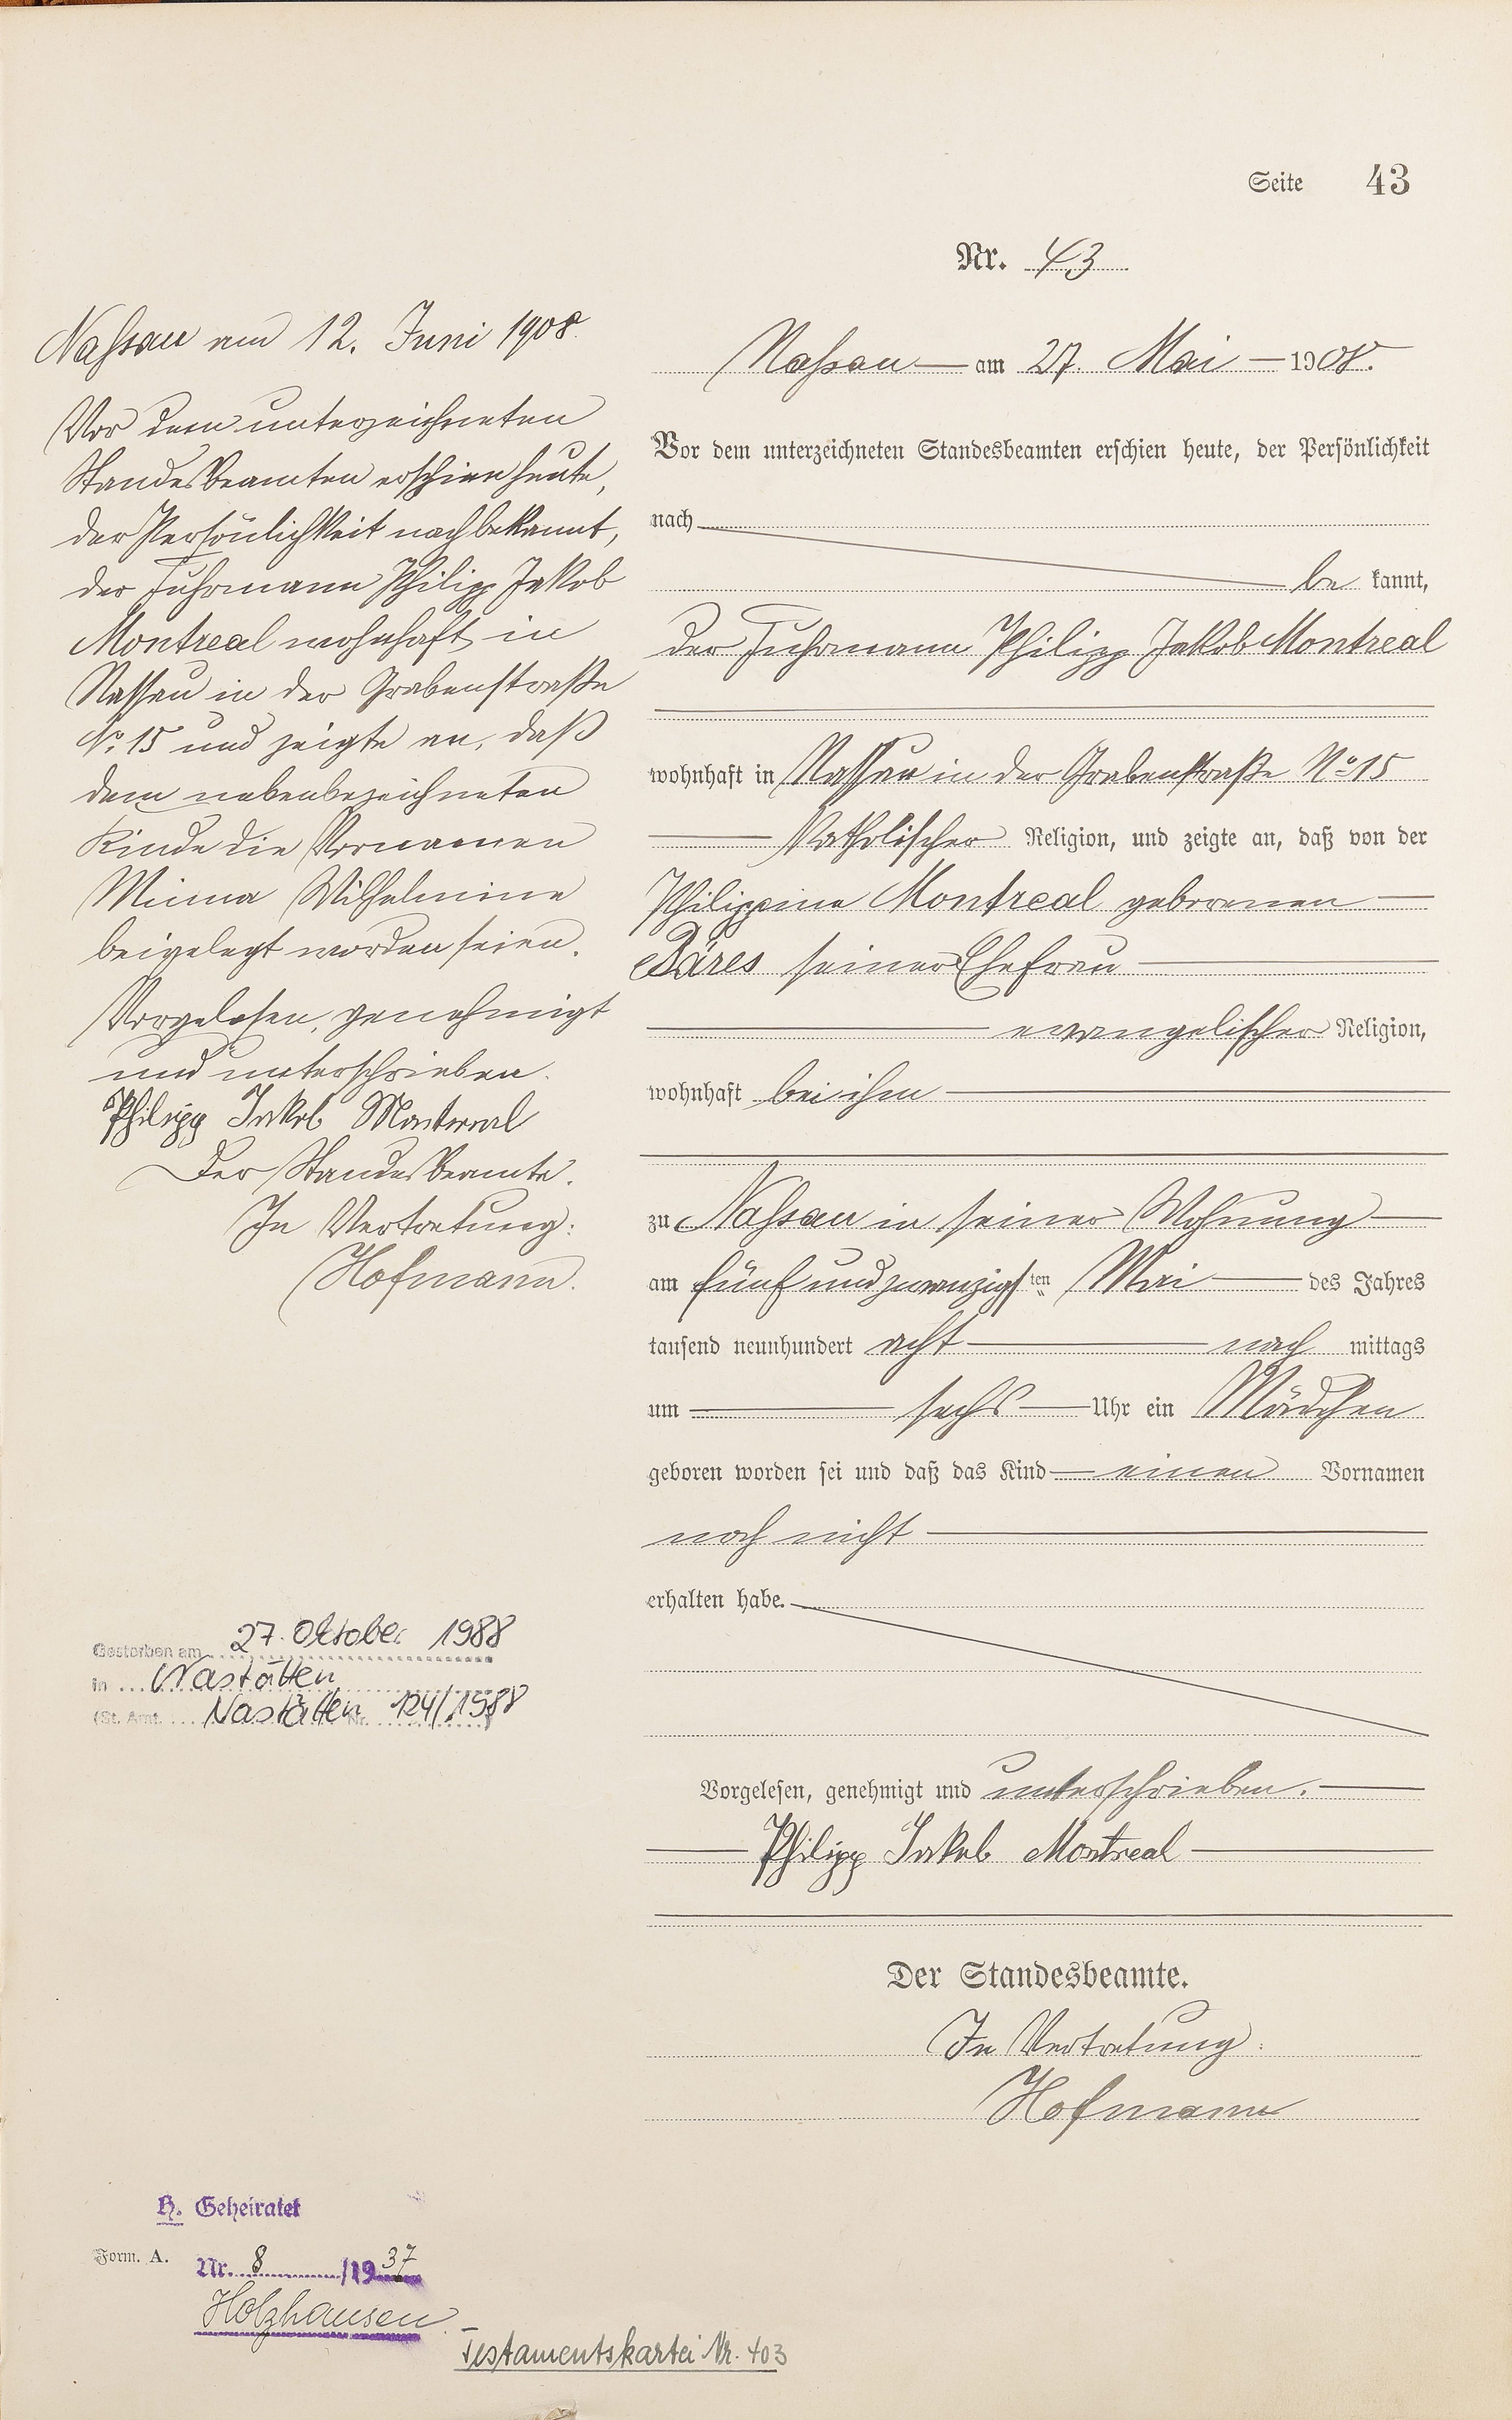 Seite 43
Nr. 43
Nassau am 12. Juni 1908.
Vor dem unterzeichneten
Standesbeamten erschien heute,
der Persönlichkeit nach bekannt,
der Fuhrmann Philipp Jakob
Montreal wohnhaft in
Nassau in der Grabenstraße
No. 15 und zeigte an, daß
dem nebenbezeichneten
Kinde die Vornamen
Minna Wilhelmine
beigelegt worden seien.
Vorgelesen, genehmigt
und unterschrieben.
Philipp Jakob Montreal
Der Standesbeamte.
In Vertretung:
Hofmann.
Gestorben am 27. Oktober 1988
in Nastätten
(St. Amt Nastätten Nr. 124/1988)
H. Geheiratet
Form. A.
Nr. 8 /1937
Holzhausen
Testamentskartei Nr. 403
Nassau am 27. Mai 1908.
Vor dem unterzeichneten Standesbeamten erschien heute, der Persönlichkeit
nach
be kannt,
der Fuhrmann Philipp Jakob Montreal
wohnhaft in Nassau in der Grabenstraße No 15
katholischer Religion, und zeigte an, daß von der
Philippine Montreal geborenen
Bäres seiner Ehefrau
evangelischer Religion,
wohnhaft bei ihm
zu Nassau in seiner Wohnung
am fünf und zwanzigsten Mai des Jahres
tausend neunhundert acht nach mittags
um sechs Uhr ein Mädchen
geboren worden sei und daß das Kind einen Vornamen
noch nicht
erhalten habe.
Vorgelesen, genehmigt und unterschrieben.
Philipp Jakob Montreal
Der Standesbeamte.
In Vertretung:
Hofmann